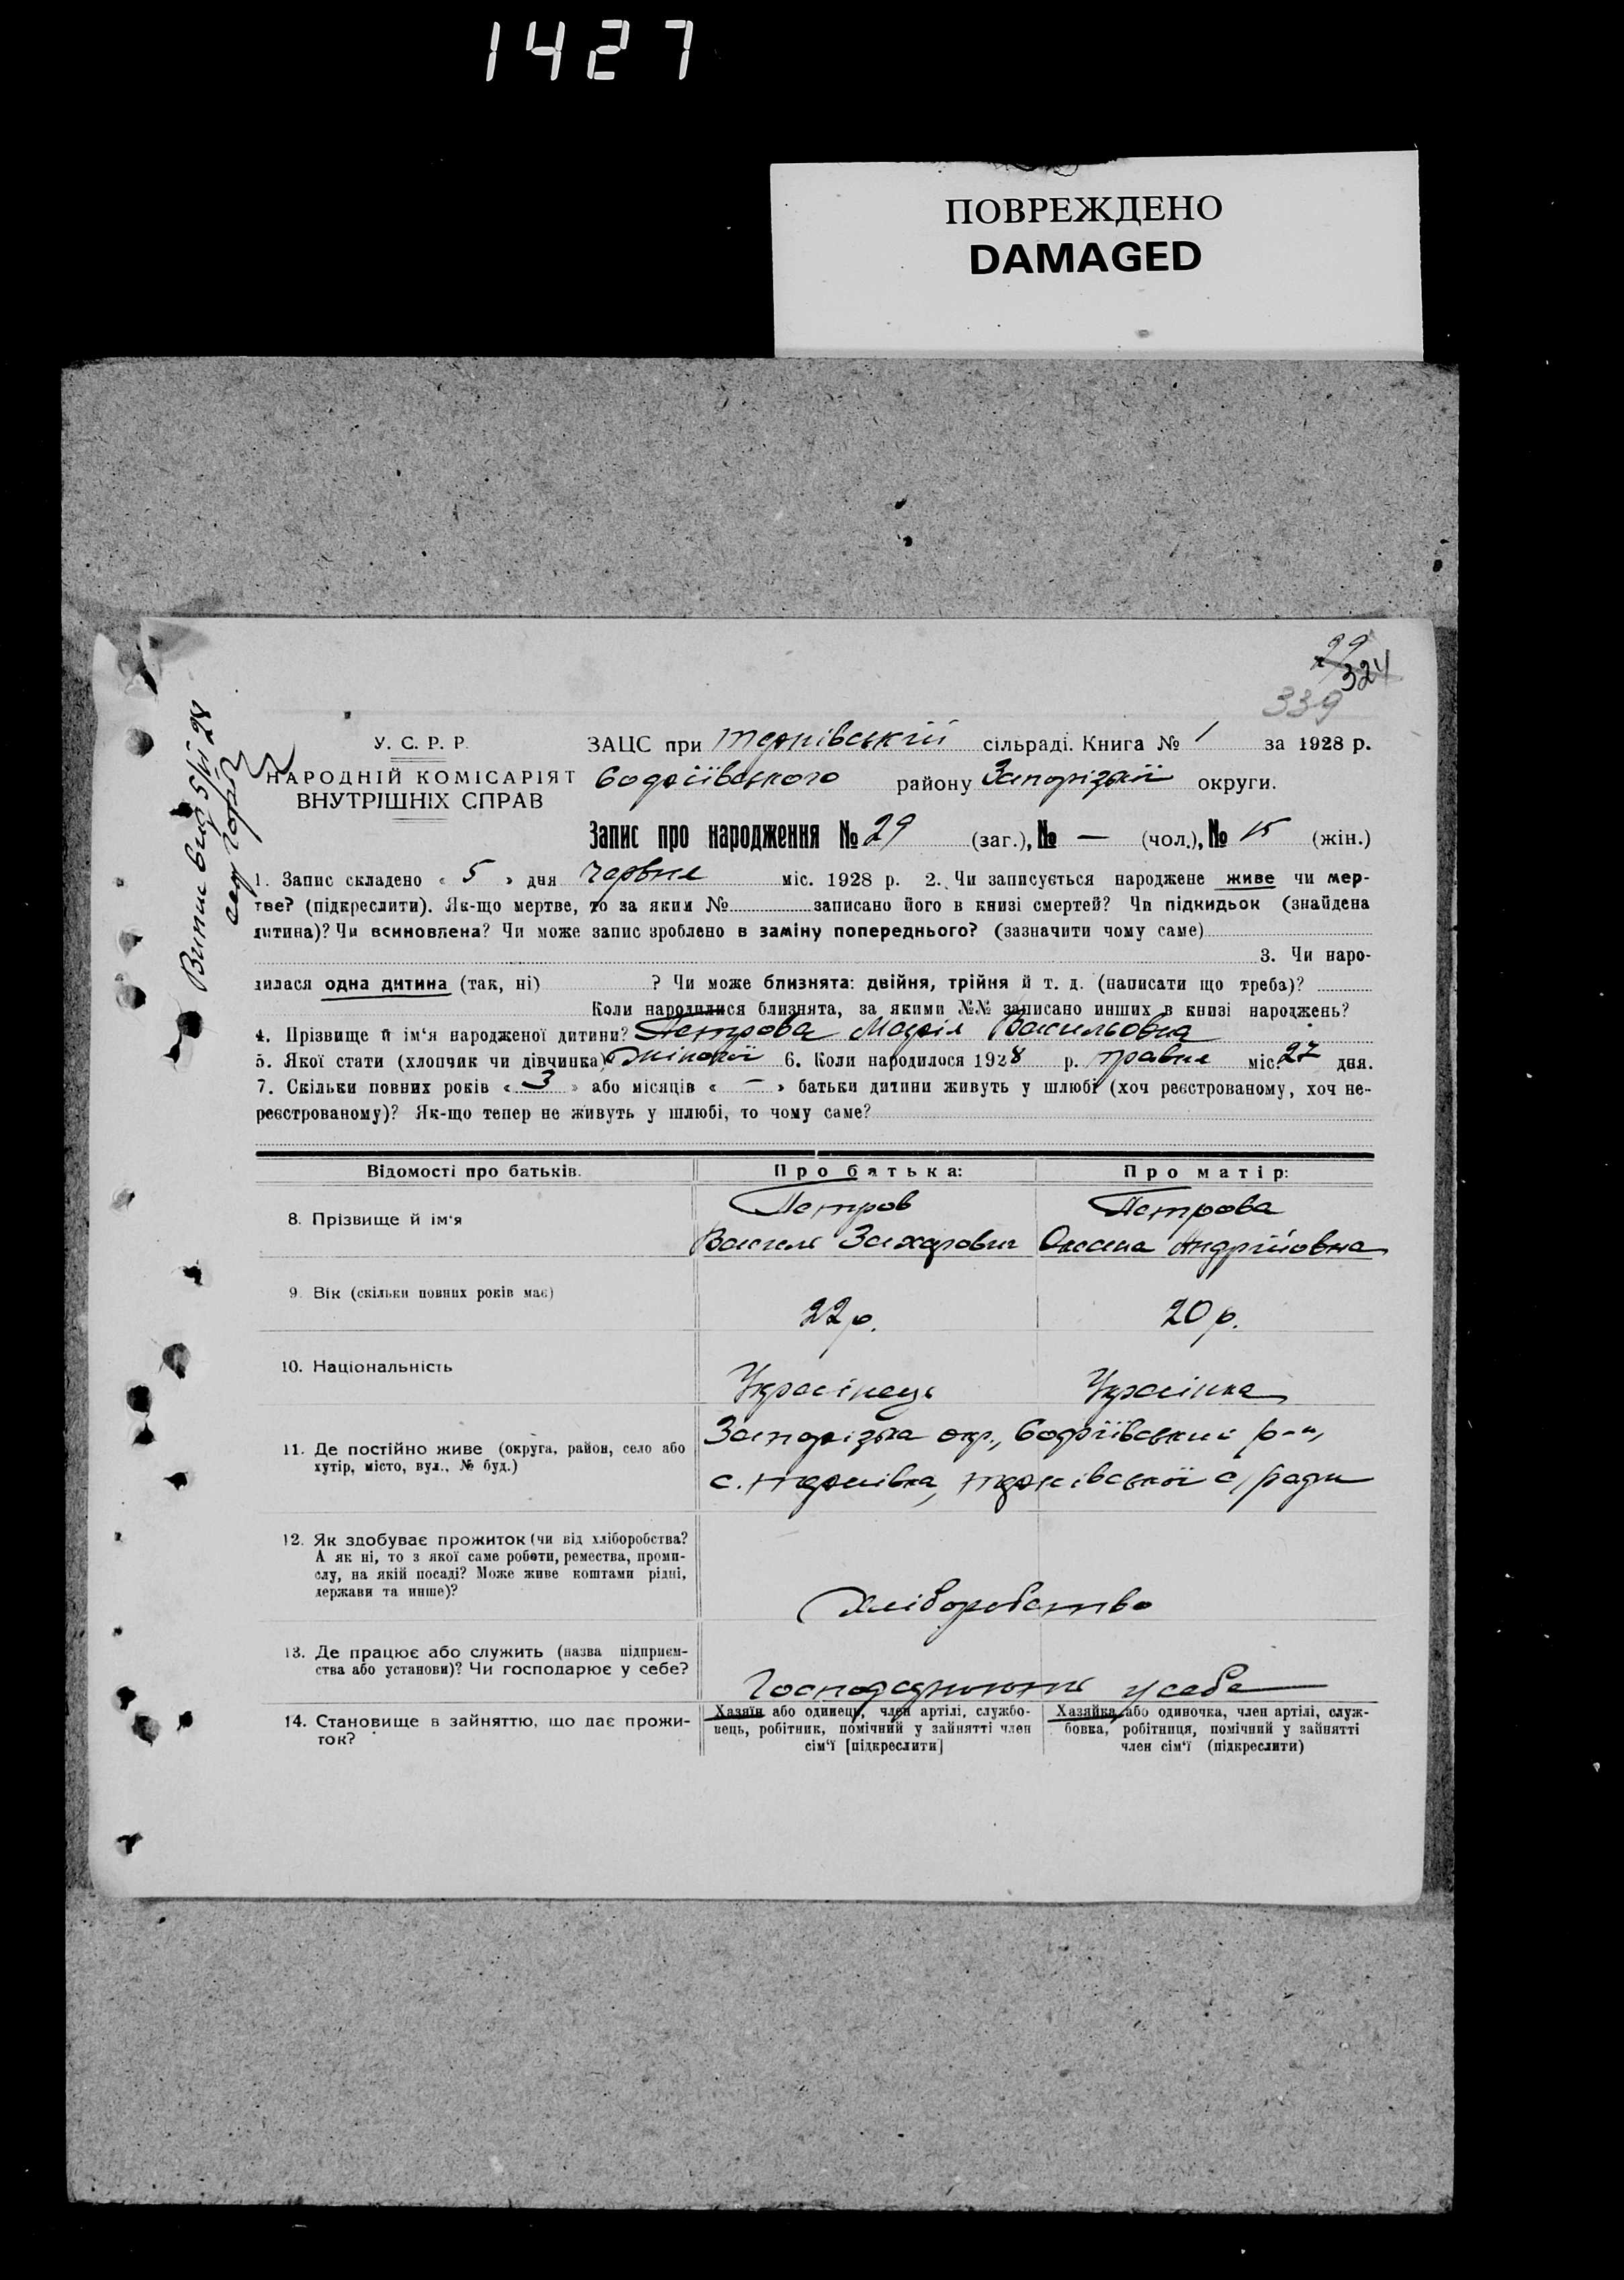 1427
ПОВРЕЖДЕНО
DAMAGED
29
324
339
Випис вид. 5/VI 28
У. С. Р. Р.
НАРОДНІЙ КОМІСАРІЯТ
ВНУТРІШНІХ СПРАВ
ЗАЦС при Тернівській сільраді. Книга № 1 за 1928 р.
району Запорізької округи.
Запис про народження № 29 (заг.), № — (чол.), № 15 (жін.)
1. Запис складено « 5 » дня червня міс. 1928 р. 2. Чи записується народжене живе чи мер-
тве? (підкреслити). Як-що мертве, то за яким № записано його в книзі смертей? Чи підкидьок (знайдена
дитина)? Чи всиновлена? Чи може запис зроблено в заміну попереднього? (зазначити чому саме)
3. Чи наро-
дилася одна дитина (так, ні) ? Чи може близнята: двійня, трійня й т. д. (написати що треба)?
Коли народилися близнята, за якими №№ записано инших в книзі народжень?
4. Прізвище й ім‘я народженої дитини? Петрова Марія Васильовна
5. Якої стати (хлопчик чи дівчинка) жіночої 6. Коли народилося 1928 р. травня міс. 27 дня.
7. Скільки повних років « 3 » або місяців « — » батьки дитини живуть у шлюбі (хоч реєстрованому, хоч не-
реєстрованому)? Як-що тепер не живуть у шлюбі, то чому саме?
Відомості про батьків. Про батька: Про матір:
8. Прізвище й ім‘я Петров Петрова
Василь Захарович Оксана Андрійовна
9. Вік (скільки повних років має) 22 р. 20 р.
10. Національність Українець Українка
11. Де постійно живе (округа, район, село або
хутір, місто, вул., № буд.)
Запорізька окр., р-н,
с. Тернівка, Тернівської с/ради
12. Як здобуває прожиток (чи від хліборобства?
А як ні, то з якої саме роботи, ремества, проми-
слу, на якій посаді? Може живе коштами рідні,
держави та инше)?
Хліборобство
13. Де працює або служить (назва підприєм-
ства або установи)? Чи господарює у себе?
Господарюють у себе
14. Становище в зайняттю, що дає прожи-
ток?
Хазяїн або одинець, член артілі, службо-
вець, робітник, помічний у зайнятті член
сім‘ї [підкреслити]
Хазяйка або одиночка, член артілі, служ-
бовка, робітниця, помічний у зайнятті
член сім‘ї (підкреслити)